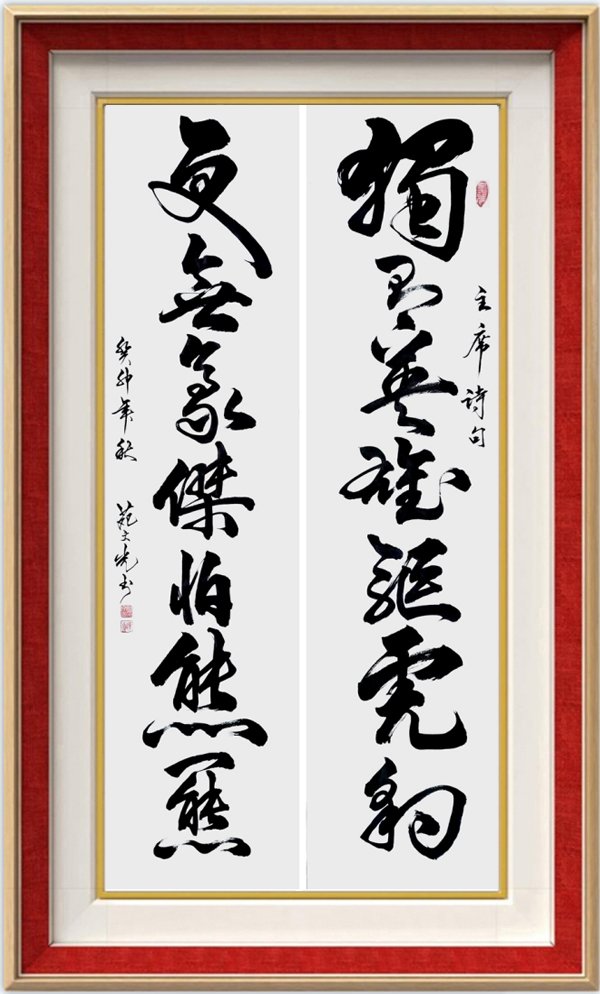 主席詩句
獨有英雄驅虎豹
更無豪傑怕熊羆
癸卯年秋